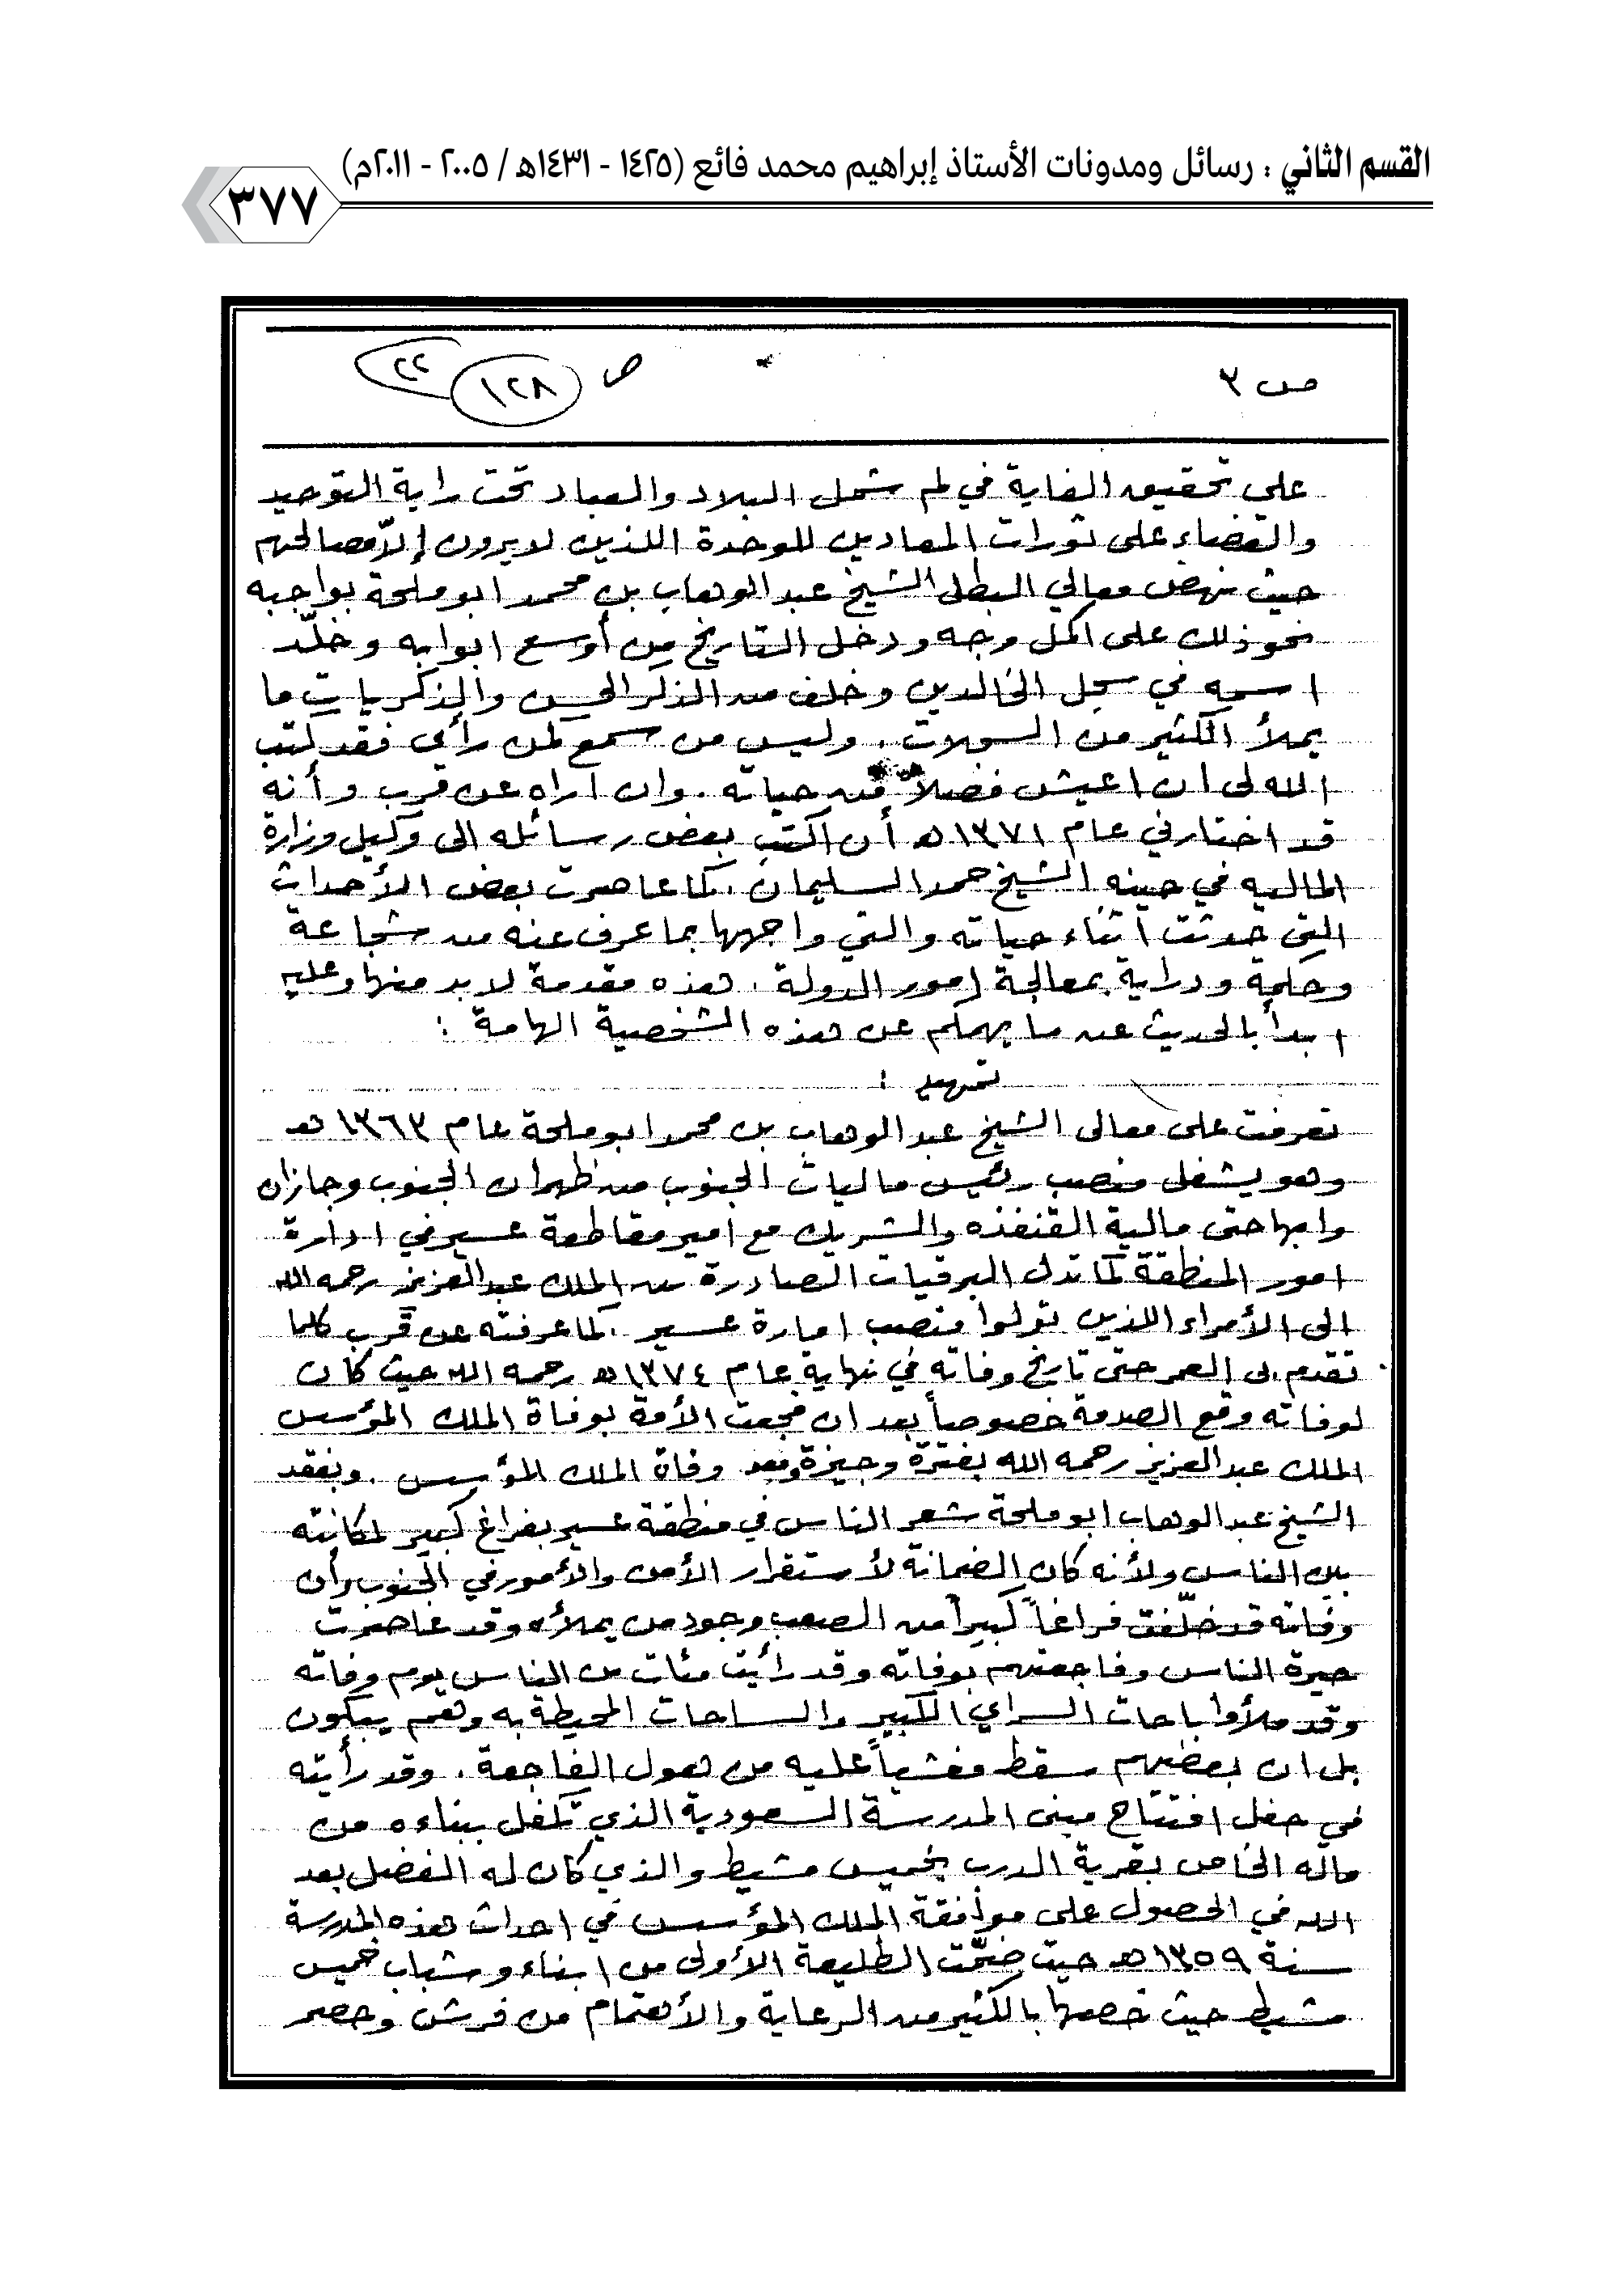 القسم الثاني : رسائل ومدونات الأستاذ إبراهيم محمد فائع (١٤٢٥ - ١٤٣١هـ / ٢٠٠٥ - ٢٠١١م)
٣٧٧
ص ٣
ص ١٢٨ ٢٢
على تحقيق الغاية في لم شمل البلاد والعباد تحت راية التوحيد
والقضاء على ثورات المعادين للوحدة اللذين لا يرون إلاّ مصالحهم
حيث نهض معالي البطل الشيخ عبد الوهاب بن محمد ابو ملحة بواجبه
نحو ذلك على اكمل وجه ودخل التاريخ من أوسع ابوابه وخلّد
اسمه في سجل الخالدين وخلف من الذكر الحسن والذكريات ما
يملأ الكثير من السجلات . وليس من سمع كمن رأى فقد كتب
الله لى ان اعيش فصلاً من حياته . وان اراه عن قرب وأنه
قد اختارني عام ١٣٧١هـ أن اكتب بعض رسائله الى وكيل وزارة
الماليه في حينه الشيخ حمد السليمان . كما عاصرت بعض الأحداث
التي حدثت اثناء حياته والتي واجهها بما عرف عنه من شجاعة
وحكمة ودراية بمعالجة امور الدولة . هذه مقدمة لا بد منها وعليه
ابدأ بالحديث عن ما يهمكم عن هذه الشخصية الهامة :
تمهيد :
تعرفت على معالى الشيخ عبد الوهاب بن محمد ابو ملحة عام ١٣٦٣ هـ
وهو يشغل منصب رئيس ماليات الجنوب من ظهران الجنوب وجازان
وابها حتى مالية القنفذه والشريك مع امير مقاطعة عسير في ادارة
امور المنطقة كما تدل البرقيات الصادرة من الملك عبد العزيز رحمه الله
الى الأمراء اللذين تولوا منصب امارة عسير . كما عرفته عن قرب كلما
تقدم بى العمر حتى تاريخ وفاته في نهاية عام ١٣٧٤هـ رحمه الله حيث كان
لوفاته وقع الصدمة خصوصاً بعد ان فجعت الأمة بوفاة الملك المؤسس
الملك عبد العزيز رحمه الله بفترة وجيزة وبعد وفاة الملك المؤسس . وبفقد
الشيخ عبد الوهاب ابو ملحة شعر الناس في منطقة عسير بفراغ كبير لمكانته
بين الناس ولأنه كان الضمانة لأستقرار الأمن والأمور في الجنوب وأن
وفاته قد خلّفت فراغاً كبيراً من الصعب وجود من يملأه وقد عاصرت
حيرة الناس وفاجعتهم بوفاته وقد رأيت مئات من الناس يوم وفاته
وقد ملأوا باحات السراي الكبير والساحات المحيطة به وهم يبكون
بل ان بعضهم سقط مغشياً عليه من هول الفاجعة . وقد رأيته
في حفل افتتاح مبنى المدرسة السعودية الذي تكفل ببناءه من
ماله الخاص بقرية الدرب بخميس مشيط والذي كان له الفضل بعد
الله في الحصول على موافقة الملك المؤسس في احداث هذه المدرسة
سنة ١٣٥٩هـ حيث ضمّت الطليعة الأولى من ابناء وشباب خميس
مشيط حيث خصها بالكثير من الرعاية والأهتمام من فرش وحصر